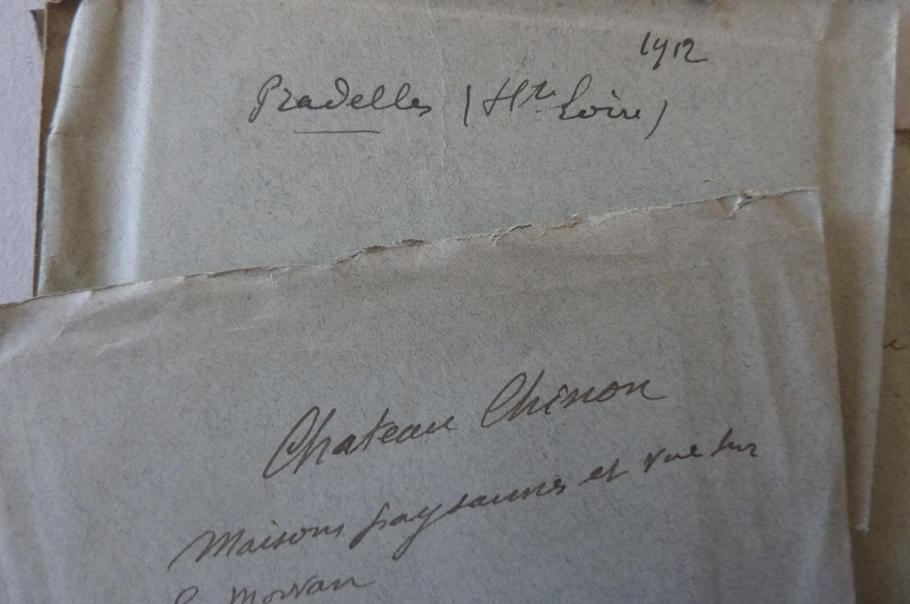 1912
Pradelles (Hte Loire)
Chateau Chinon
Maisons paysannes et vue sur
le Morvan